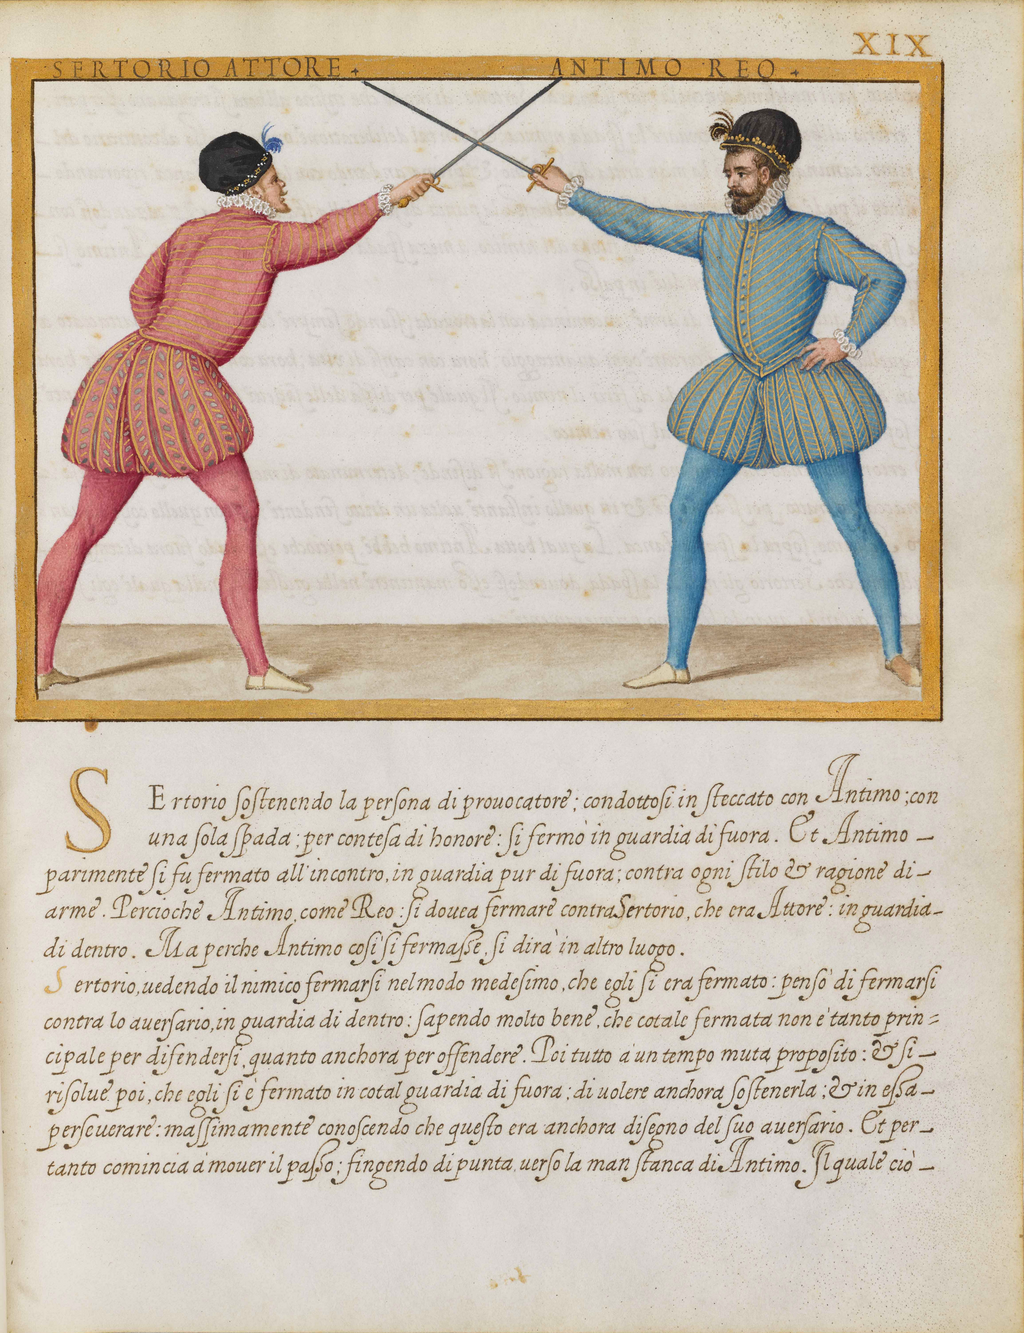 XIX
SERTORIO ATTORE
ANTIMO REO
SErtorio sostenendo la persona di prouocatore; condottosi in steccato con Antimo; con
una sola spada; per contesa di honore: si fermò in guardia di fuora. Et Antimo —
parimente si fu fermato all'incontro, in guardia pur di fuora; contra ogni stilo & ragione di —
arme. Percioche Antimo, come Reo: si douea fermare contra Sertorio, che era Attore: in guardia —
di dentro. Ma perche Antimo così si fermasse, si dirà in altro luogo.
Sertorio, uedendo il nimico fermarsi nel modo medesimo, che egli si era fermato: pensò di fermarsi
contra lo auersario, in guardia di dentro: sapendo molto bene, che cotale fermata non è tanto prin=
cipale per difendersi, quanto anchora per offendere. Poi tutto a un tempo muta proposito: & si —
risolue poi, che egli si è fermato in cotal guardia di fuora; di uolere anchora sostenerla; & in essa —
perseuerare: massimamente conoscendo che questo era anchora disegno del suo auersario. Et per —
tanto comincia à mouer il passo; fingendo di punta uerso la man stanca di Antimo. Il quale ciò —